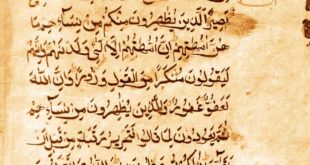 بصير الذين يظهرون منكم من نسآئهم ما
هن أمهتهم إن أمهتهم إلا الي ولدنهم وإنهم
ليقولون منكرا من القول وزورا وإن الله
لعفو غفور والذين يظهرون من نسآئهم ثم
يعودون لما قالوا فتحرير رقبة من قبل أن